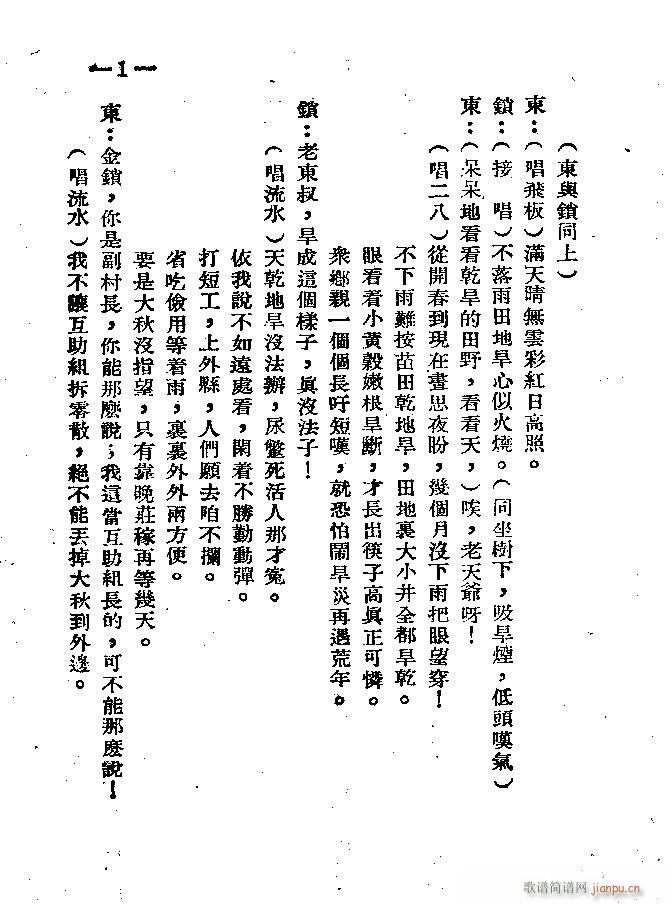 —1—
（東與鎖同上）
東：（唱飛板）滿天晴無雲彩紅日高照。
鎖：（接　唱）不落雨田地旱心似火燒。（同坐樹下，吸旱煙，低頭嘆氣）
東：（呆呆地看看乾旱的田野，看看天，）唉，老天爺呀！
（唱二八）從開春到現在晝思夜盼，幾個月沒下雨把眼望穿！
不下雨難按苗田乾地旱，田地裏大小井全都旱乾。
眼看着小黃穀嫩根旱斷，才長出筷子高眞正可憐。
衆鄉親一個個長吁短嘆，就恐怕鬧旱災再遇荒年。
鎖：老東叔，旱成這個樣子，眞沒法子！
（唱流水）天乾地旱沒法辦，尿蹩死活人那才寃。
依我說不如遠處看，閑着不勝勤動彈。
打短工，上外縣，人們願去咱不攔。
省吃儉用等着雨，裏裏外外兩方便。
要是大秋沒指望，只有靠晚莊稼再等幾天。
東：金鎖，你是副村長，你能那麽說；我這當互助組長的，可不能那麽說！
（唱流水）我不讓互助組拆零散，絕不能丟掉大秋到外邊。
歌谱简谱网
jianpu.cn